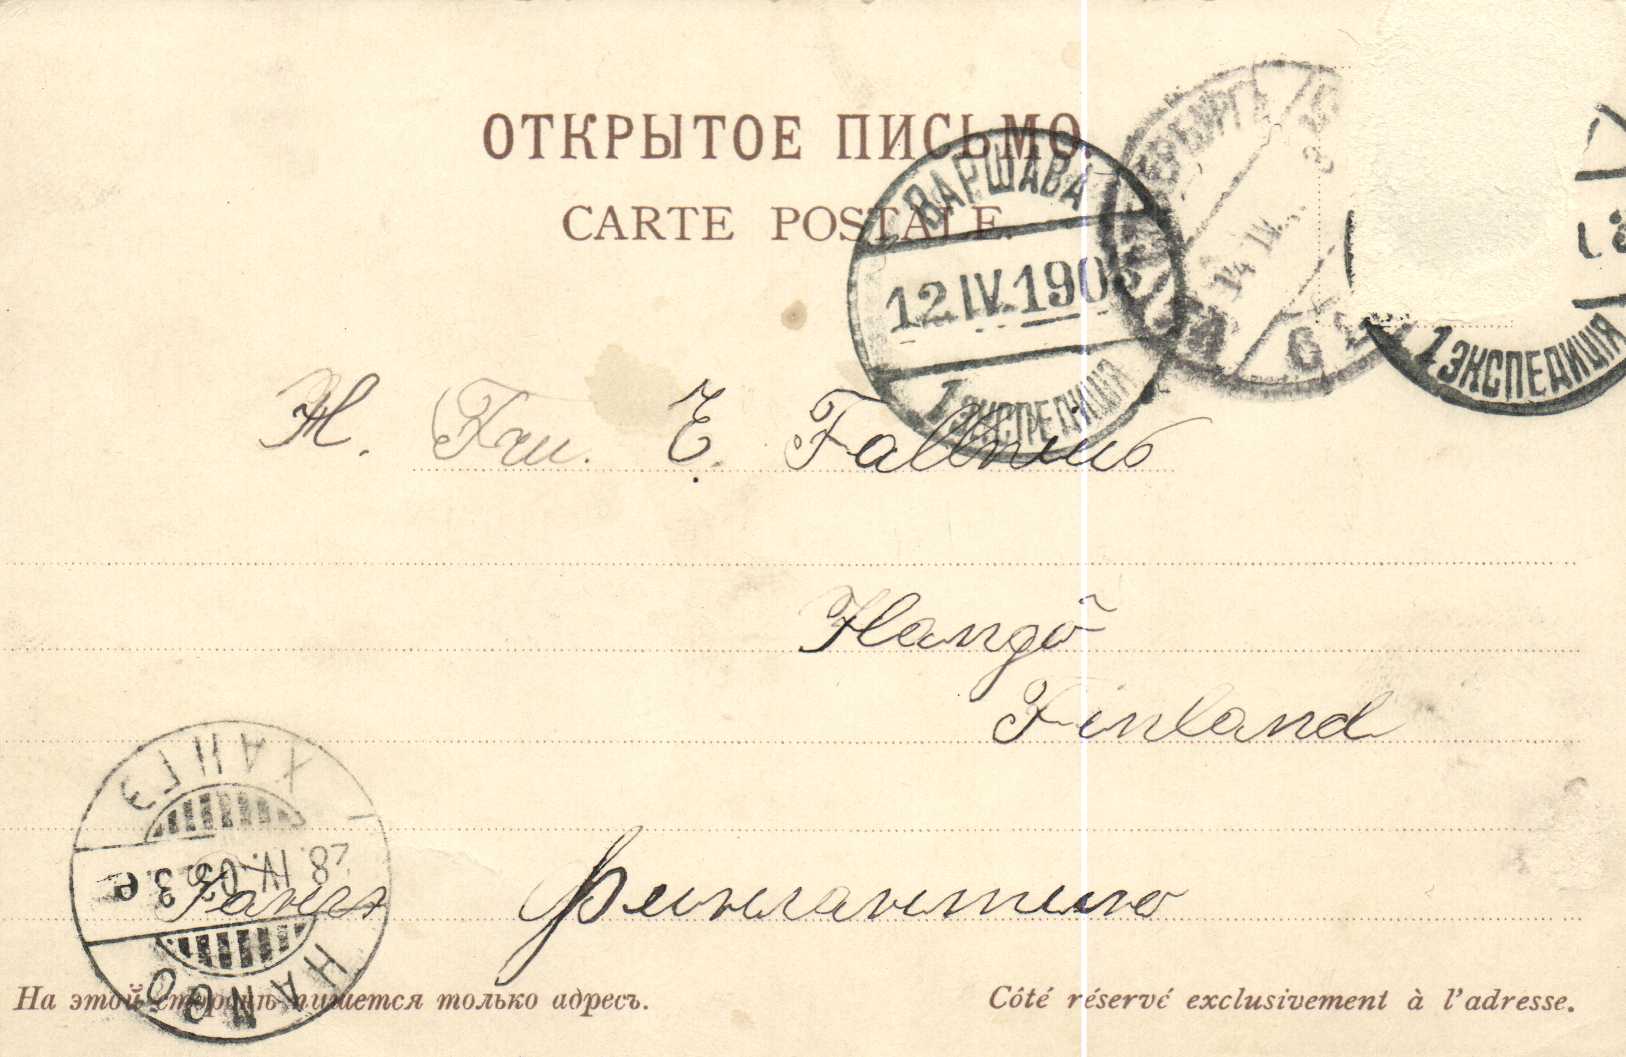 ОТКРЫТОЕ ПИСЬМО.
CARTE POSTALE.
ВАРШАВА
12.IV.1903
1 ЭКСПЕДИЦІЯ
14 IV
1 ЭКСПЕДИЦІЯ
H. Fru. E. Fallenius
Hangö
Finland
ХАНГЭ
28.IV.03.3 e
HANGÖ
На этой сторонѣ пишется только адресъ.
Côté réservé exclusivement à l'adresse.